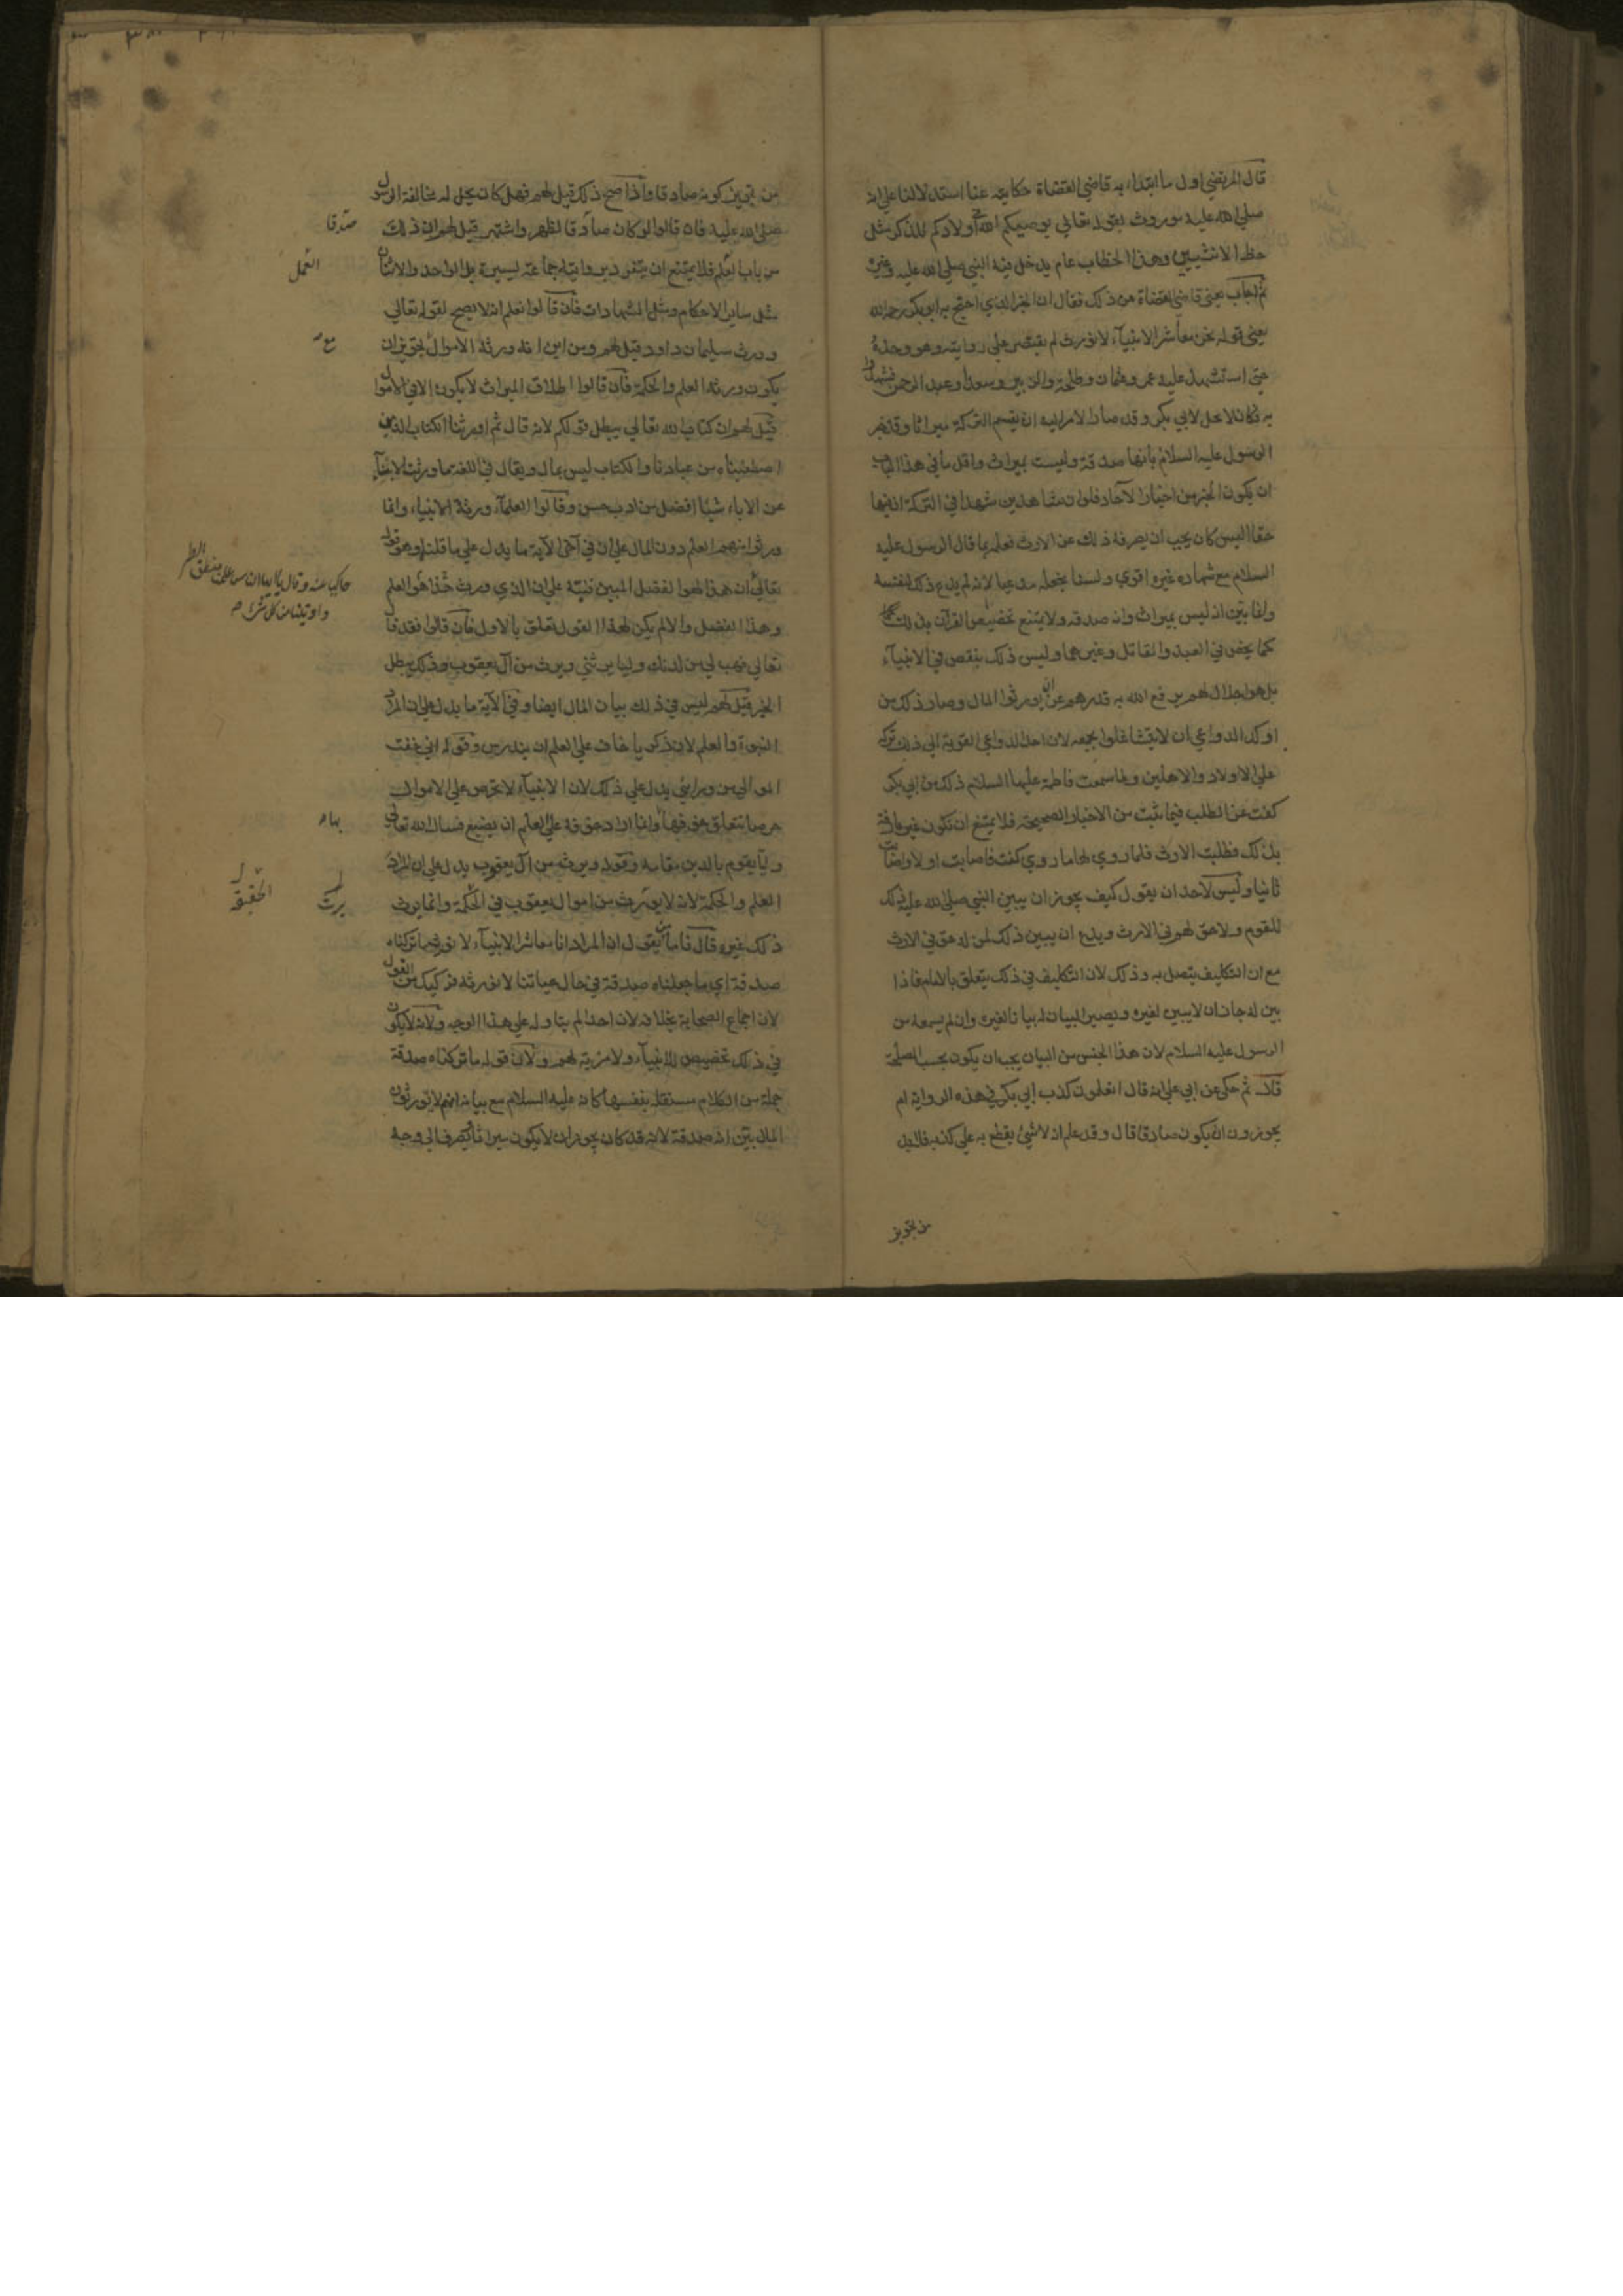 قال المرتضى اول ما ابتداء به قاضي القضاة حكايته عنا استدلالنا علي انه
صلي الله عليه موروث بقوله تعالي يوصيكم الله في اولادكم للذكر مثل
حظ الانثيين وهذا الخطاب عام يدخل فيه النبي صلي الله عليه وغيره
ثم اجاب يعني قاضي القضاة عن ذلك فقال ان الخبر الذي احتج به ابو بكر رحمه الله
يعني قوله نحن معاشر الانبيآء لا نورث لم يقتصر علي روايته هو وحده
حتي استشهد عليه عمر وعثمان وطلحة والزبير وسعدا وعبد الرحمن فشهدوا
به فكان لا يحل لابي بكر وقد صار الامر اليه ان يقسم التركة ميراثا وقد خبر
الرسول عليه السلام بانها صدقة وليست بميراث واقل ما في هذا الباب
ان يكون الخبر من اخبار الآحاد فلو ان شاهدين شهدا في التركة ان فيها
حقا اليس كان يجب ان يصرفه ذلك عن الارث فعلمه بما قال الرسول عليه
السلام مع شهادة غيره اقوي ولسنا نجعله مدعيا لانه لم يدع ذلك لنفسه
وانما بين انه ليس بميراث وانه صدقة ولا يمتنع تخصيص القرآن بذلك
كما يخص في العبد والقاتل وغيرهما وليس ذلك بنقص في الانبيآء
بل هو اجلال لهم يرفع الله به قدرهم عن ان يورثوا المال وصار ذلك من
اوكد الدواعي ان لا يتشاغلوا بجمعه لان احد الدواعي القوية الي ذلك تركه
علي الاولاد والاهلين ولما سمعت فاطمة عليها السلام ذلك من ابي بكر
كفت عن الطلب فيما ثبت من الاخبار الصحيحة فلا يمتنع ان تكون غير عارفة
بذلك فطلبت الارث فلما روي لها ما روي كفت فاصابت اولا واصابت
ثانيا وليس لاحد ان يقول كيف يجوز ان يبين النبي صلي الله عليه ذلك
للقوم ولا حق لهم في الارث ويدع ان يبين ذلك لمن له حق في الارث
مع ان التكليف يتصل به وذلك لان التكليف في ذلك يتعلق بالامام فاذا
بين له جاز ان لا يبين لغيره ويصير البيان له بيانا لغيره وان لم يسمعه من
الرسول عليه السلام لان هذا الجنس من البيان يجب ان يكون بحسب المصلحة
قال ثم حكي عن ابي علي انه قال اتعلمون كذب ابي بكر في هذه الرواية ام
يجوزون ان يكون صادقا قال وقد علم انه لا شيئ يقطع به علي كذبه فلا بد
من تجويز
من تجويز كونه صادقا واذا صح ذلك قيل لهم فهل كان يحل له مخالفة الرسول
صلي الله عليه فان قالوا لو كان صادقا لظهر واشتهر قيل لهم ان ذلك
صدقا
من باب العلم فلا يمتنع ان يتفرد بروايته جماعة يسيرة بل الواحد والاثنان
العمل
مثل ساير الاحكام ومثل الشهادات فان قالوا نعلم انه لا يصح لقوله تعالي
وورث سليمان داود قيل لهم ومن اين انه ورثه الاموال بتجويز ان
يكون ورثه العلم والحكمة فان قالوا اطلاق الميراث لا يكون الا في الاموال
قيل لهم ان كتاب الله تعالي يبطل قولكم لانه قال ثم اورثنا الكتاب الذين
اصطفيناه من عبادنا والكتاب ليس بمال ويقال في اللغة ما ورثت الابنآء
عن الاباء شيئا افضل من ادب حسن وقالوا العلمآء ورثة الانبياء وانما
ورثوا منهم العلم دون المال علي ان في آخر الآية ما يدل علي ما قلناه وهو قوله
تعالي ان هذا لهو الفضل المبين فنبّه علي ان الذي ورث هذا هو العلم
وهذا الفضل والا لم يكن لهذا القول تعلق بالاول فان قالوا فقد قال
تعالي فهب لي من لدنك وليا يرثني ويرث من آل يعقوب وذلك يبطل
الخبر قيل لهم ليس في ذلك بيان المال ايضا وفي الآية ما يدل علي ان المراد
النبوة والعلم لان زكريا خاف علي العلم ان يندرس وقوله اني خفت
الموالي من ورايئ يدل علي ذلك لان الانبيآء لا تحرص علي الاموال
حرصا تتعلق خوفها وانما اراد خوفه علي العلم ان يضيع فسال الله تعالي
بها
وليّا يقوم بالدين مقامه وقوله ويرث من آل يعقوب يدل علي ان المراد
العلم والحكمة لانه لا يورث من اموال يعقوب في الحكمة وانما يرث
يرث
الحقيقة
ذلك غيره قال فاما من يقول ان المراد انا معاشر الانبيآء لا نورث ما تركناه
صدقة اي ما جعلناه صدقة في حال حياتنا لا نورثه فركيك من القول
لان اجماع الصحابة بخلافه لان احدا لم يتاوله علي هذا الوجه ولانه لا يكون
في ذلك تخصيص للانبيآء ولا مزية لهم ولان قوله ما تركناه صدقة
جملة من الكلام مستقلة بنفسها كانه عليه السلام مع بيانه انهم لا يورثون
المال بيّن انه صدقة لانه قد كان يجوز ان لا يكون ميراثا فيصرف الي وجه